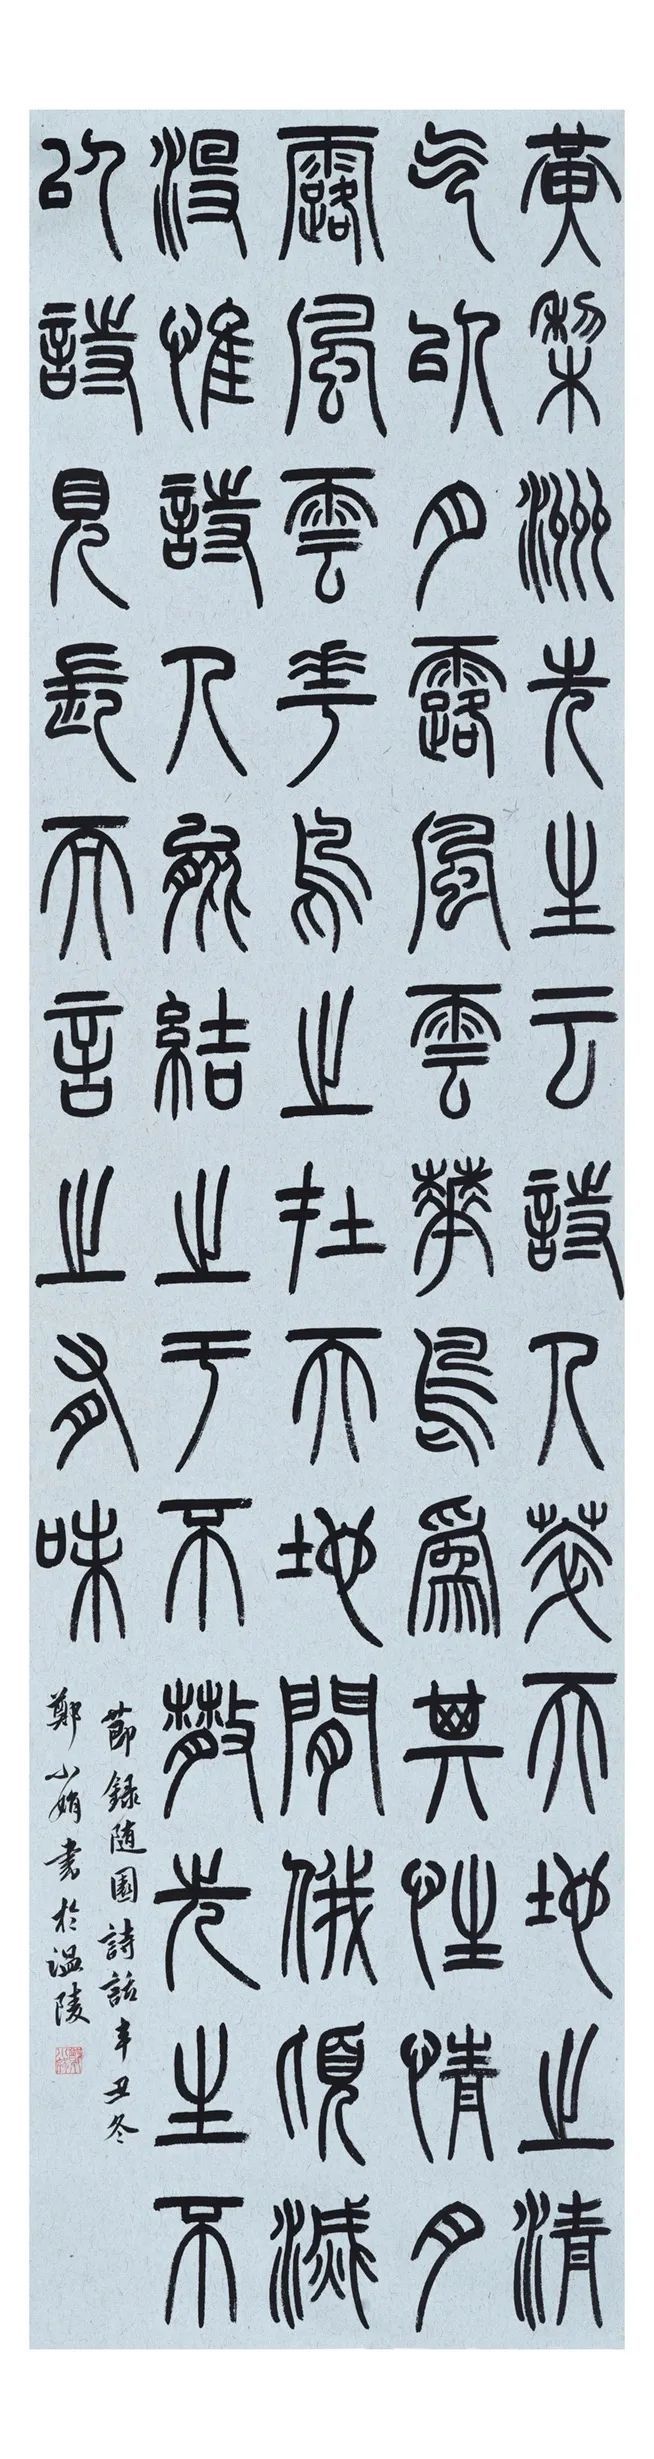 黃梨洲先生云詩人萃天地之清
气以月露風雲華鳥爲其性情月
露風雲華鳥之在天地間俄頃滅
沒惟詩人能結之于不散先生不
以詩見長而言之有味
節録随園詩話辛丑冬
鄭小娟書於温陵